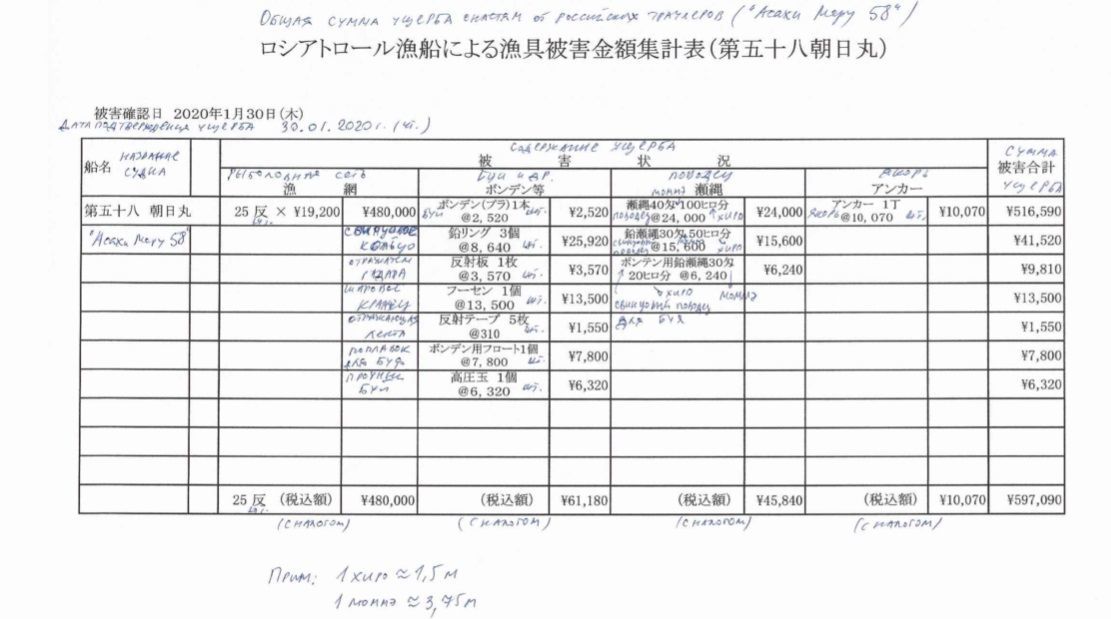 Общая сумма ущерба снастям от российских траулеров ("Асахи Мару 58")
ロシアトロール漁船による漁具被害金額集計表(第五十八朝日丸)
被害確認日 2020年1月30日(木)
Дата подтверждения ущерба 30.01.2020г. (чт.)
船名 название судна
содержание ущерба
被害状況
сумма ущерба
被害合計
рыболовные сеть
漁網
буи и др.
ボンデン等
поводец
瀬縄
якорь
アンカー
第五十八 朝日丸 25 反 × ¥19,200 ¥480,000 ボンデン(プラ)1本 @2,520 шт. ¥2,520 瀬縄40匁 100ヒロ分 @24,000 ¥24,000 アンカー 1丁 @10,070 шт. ¥10,070 ¥516,590
буи поводец хиро якорь
"Асахи Мару 58" свинцовое кольцо 鉛リング 3個 @8,640 шт. ¥25,920 鉛瀬縄30匁 50ヒロ分 @15,600 хиро ¥15,600 ¥41,520
反射板 1枚 @3,570 шт. ¥3,570 ボンデン用鉛瀬縄30匁 20ヒロ分 @6,240 ¥6,240 ¥9,810
フーセン 1個 @13,500 шт. ¥13,500 ¥13,500
хиро моммэ
свинцовый поводец для буя
отражающая лента 反射テープ 5枚 @310 шт. ¥1,550 ¥1,550
поплавок для буя ボンデン用フロート1個 @7,800 шт. ¥7,800 ¥7,800
буи 高圧玉 1個 @6,320 шт. ¥6,320 ¥6,320
25 反 (税込額) ¥480,000 (税込額) ¥61,180 (税込額) ¥45,840 (税込額) ¥10,070 ¥597,090
(с налогом) (с налогом) (с налогом) (с налогом)
Прим: 1 хиро ≈ 1,5 м
1 моммэ ≈ 3,75м